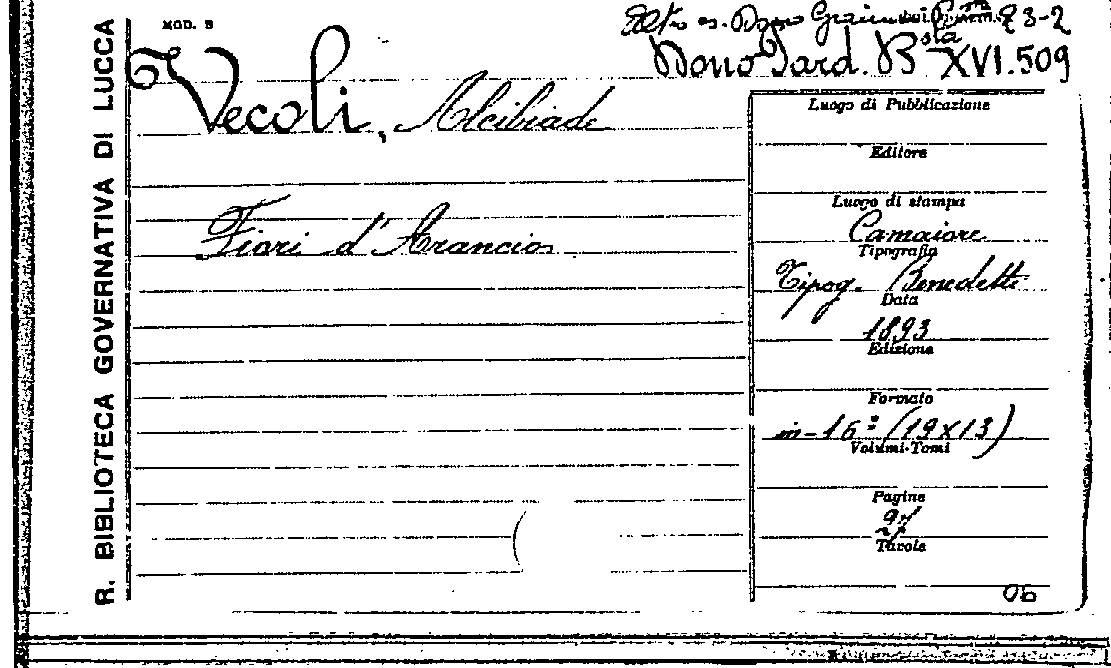 MOD. B
R. BIBLIOTECA GOVERNATIVA DI LUCCA
Dono 23-2
Dono Sard. Bsta XVI.509
Vecoli, Alcibiade
Fiori d'Arancio
Luogo di Pubblicazione
Editore
Luogo di stampa
Camaiore
Tipografia
Tipog. Benedetti
Data
1893
Edizione
Formato
in-16° (19x13)
Volumi-Tomi
Pagine
Tavole
06